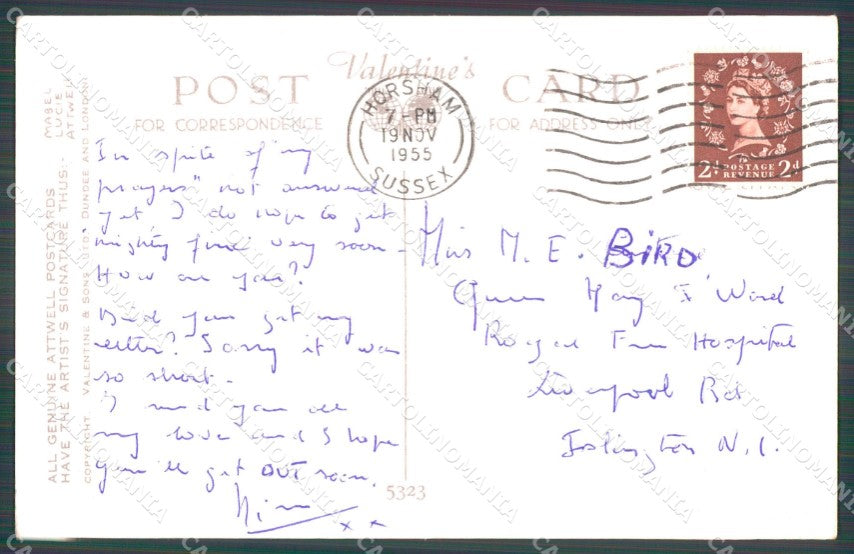 Valentine's
POST CARD
FOR CORRESPONDENCE
FOR ADDRESS ONLY
HORSHAM
7 - PM
19 NOV
1955
SUSSEX
2d POSTAGE REVENUE 2d
MABEL
LUCIE
ATTWELL
ALL GENUINE ATTWELL POSTCARDS
HAVE THE ARTIST'S SIGNATURE THUS:-
COPYRIGHT. VALENTINE & SONS, LTD., DUNDEE AND LONDON
In spite of my
prayers" not answered
yet, I do hope to get
mighty very soon -
How are you?
Did you get my
letter? Sorry it was
so short.
I send you all
my love and I hope
you'll get OUT soon.
x x
Miss M. E. BIRD,
Queen Mary Ward
Royal Free Hospital
Liverpool Rd
Islington N.1.
5323
CARTOLINOMANIA